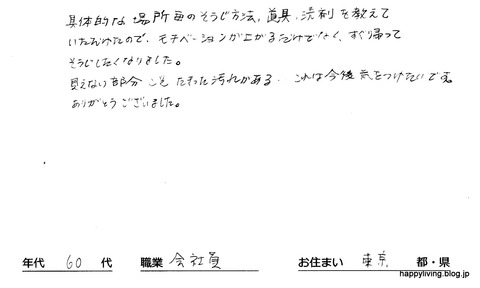 具体的な場所毎のそうじ方法、道具、洗剤を教えて
いただけたので、モチベーションが上がるだけでなく、すぐ帰って
そうじしたくなりました。
見えない部分こそたまった汚れがある。これは今後気をつけたいです。
ありがとうございました。
年代 60 代 職業 会社員 お住まい 東京 都・県
happyliving.blog.jp